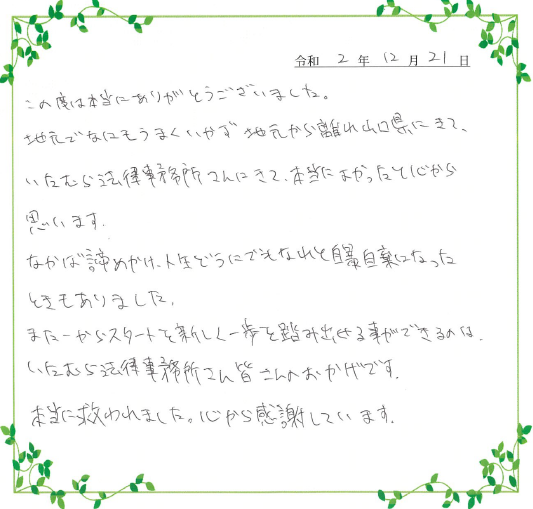 令和 2 年 12 月 21 日
この度は本当にありがとうございました。
地元でなにもうまくいかず地元から離れ山口県にきて、
いたむら法律事務所さんにきて、本当によかったと心から
思います。
なかば諦めかけ、人生どうにでもなれと自暴自棄になった
ときもありました。
また一からスタートを新しく一歩を踏み出せる事ができるのは、
いたむら法律事務所さん皆さんのおかげです。
本当に救われました。心から感謝しています。